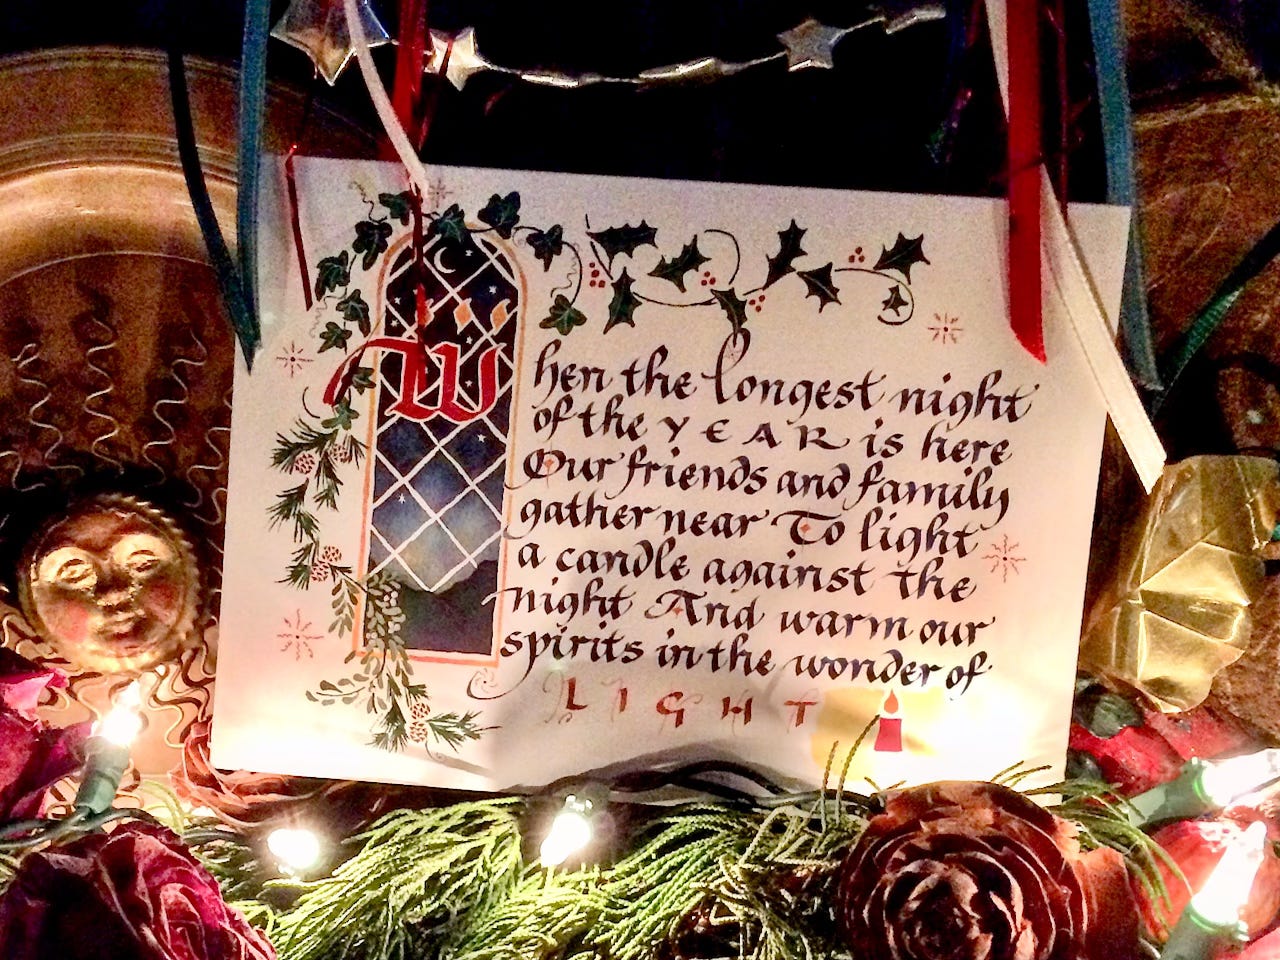 When the longest night
of the YEAR is here
Our friends and family
gather near To light
a candle against the
night And warm our
spirits in the wonder of
LIGHT